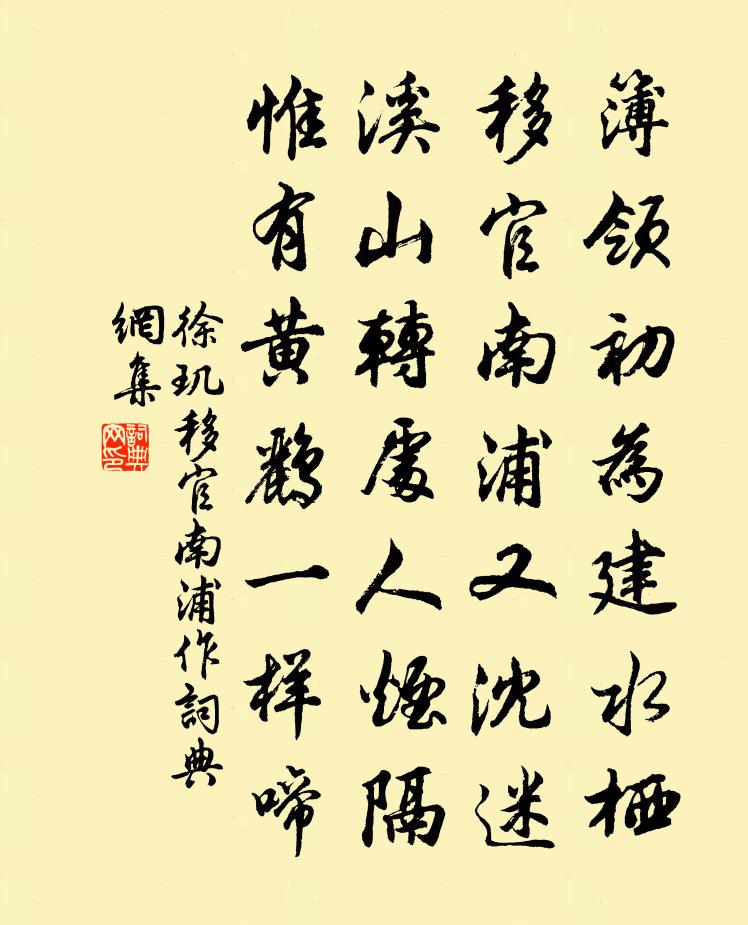 簿領初為建水栖
移官南浦又沈迷
溪山轉處人煙隔
惟有黃鸝一样啼
徐玑移官南浦作詞典
網集
詞典
网印